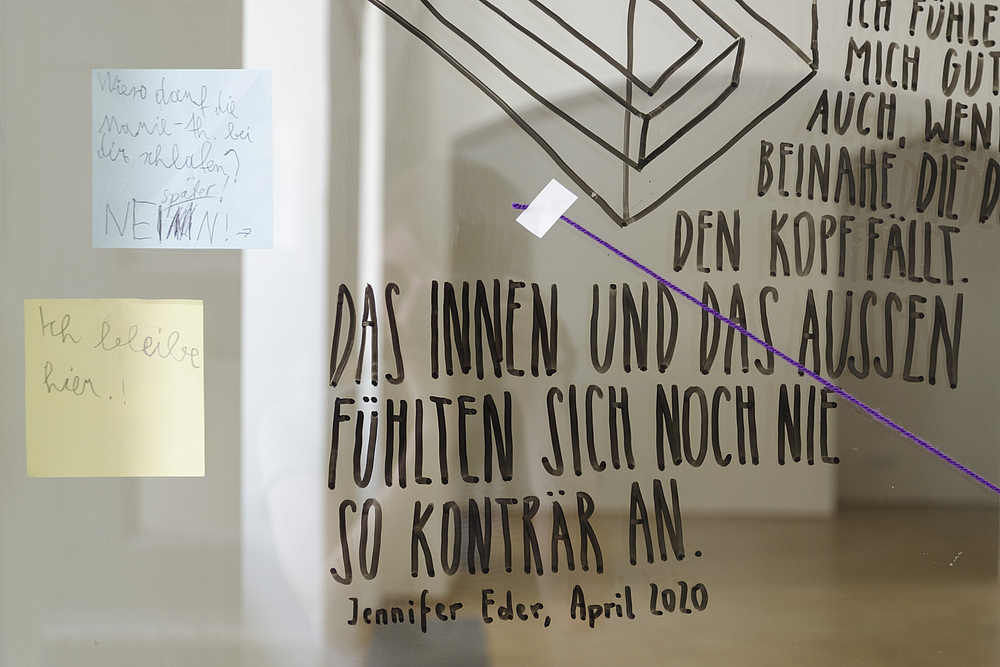 Wieso darf die
Marie-Th. bei
dir schlafen?
später!
NEIN! →
Ich bleibe
hier.!
ICH FÜHLE
MICH GUT
AUCH, WEN
BEINAHE DIE D
DEN KOPF FÄLLT.
DAS INNEN UND DAS AUSSEN
FÜHLTEN SICH NOCH NIE
SO KONTRÄR AN.
Jennifer Eder, April 2020